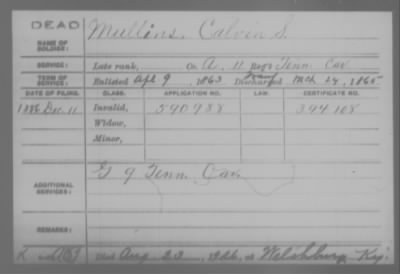 DEAD
NAME OF SOLDIER: Mullins, Calvin S.
SERVICE: Late rank, Co. A, 11 Reg't Tenn Cav
TERM OF SERVICE: Enlisted Apl 9, 1863 Discharged Mch 24, 1865
DATE OF FILING. CLASS. APPLICATION NO. LAW. CERTIFICATE NO.
Dec. 11 Invalid, 590988 394108
Widow,
Minor,
ADDITIONAL SERVICES: G 9 Tenn. Cav.
REMARKS:
Died Aug 23, 1926, at Welchburg Ky.